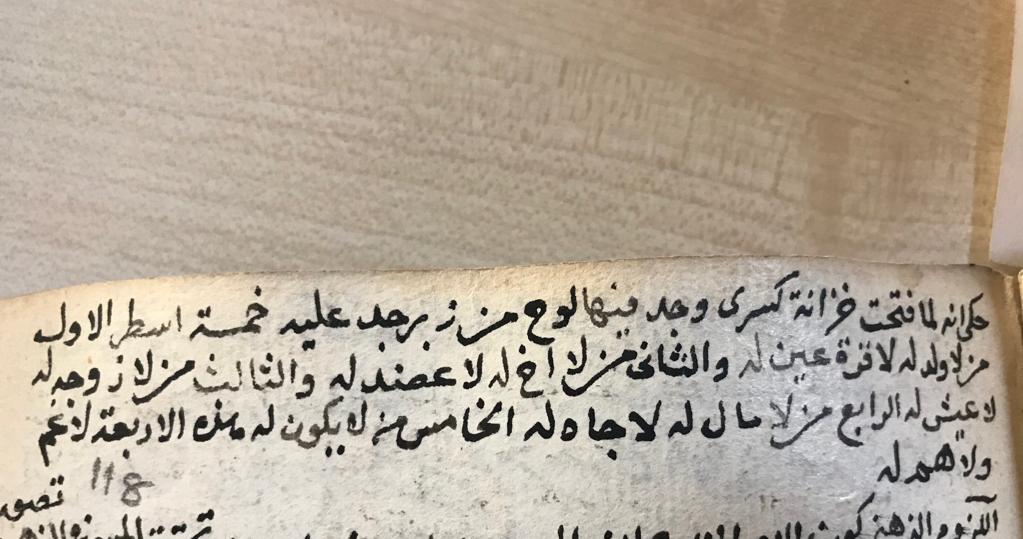 حكى انه لما فتحت خزانة كسرى وجد فيها لوح من زبرجد عليه خمسة اسطر الاول
من لا ولد له لا قرة عين له والثانى من لا اخ له لا عضد له والثالث من لا زوجه له
لا عيش له الرابع من لا مال له لا جاه له الخامس من لا يكون له هذه الاربعة لا غم
ولا هم له
118 تصور
اللزوم الذهنى كون